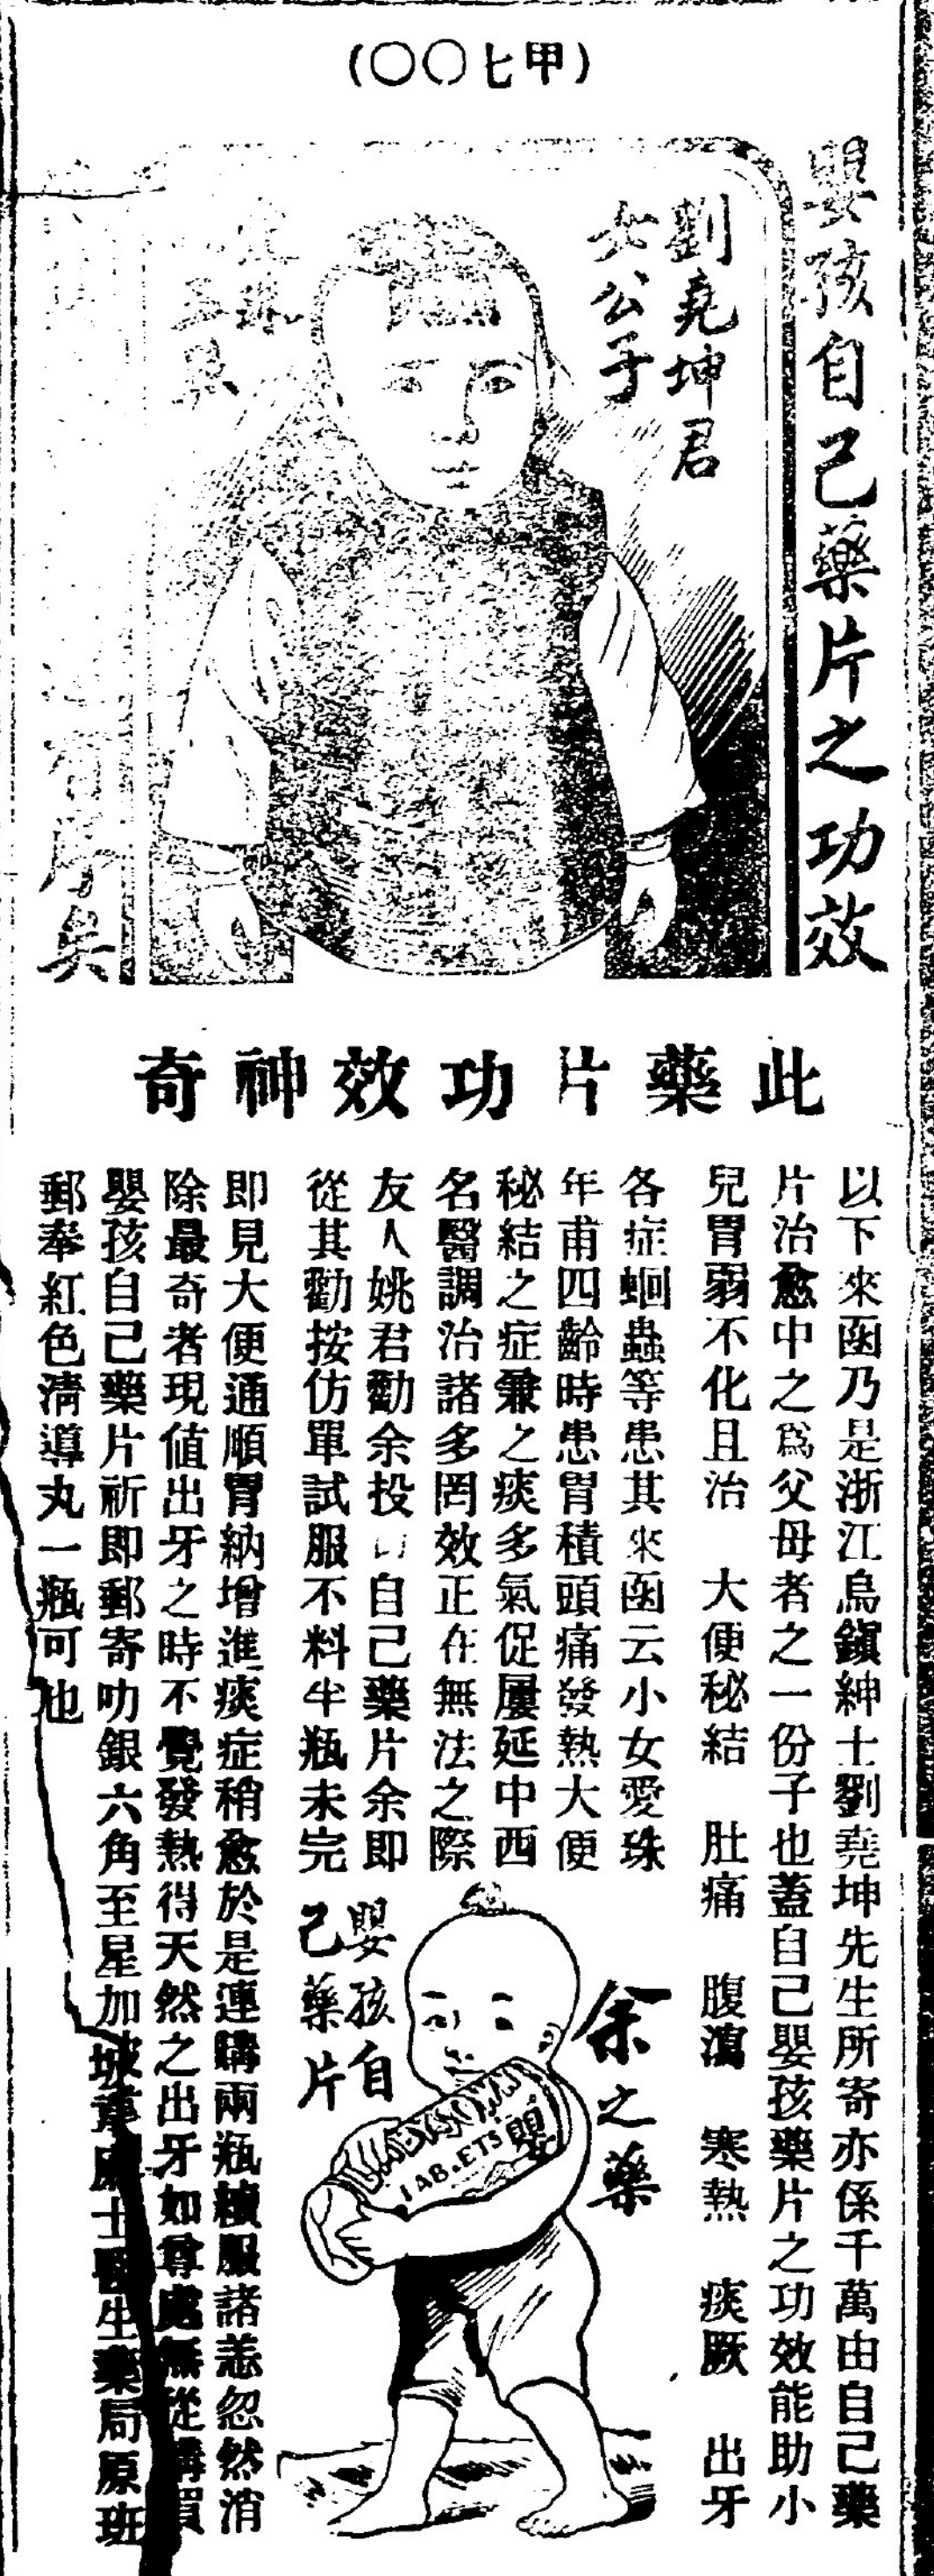 (甲七〇〇)
嬰孩自己藥片之功效
劉堯坤君
女公子
有序矣
此藥片功效神奇
以下來函乃是浙江烏鎮紳士劉堯坤先生所寄亦係千萬由自己藥
片治愈中之爲父母者之一份子也蓋自己嬰孩藥片之功效能助小
兒胃弱不化且治 大便秘結 肚痛 腹瀉 寒熱 痰厥 出牙
各症蛔蟲等患其來函云小女愛珠
年甫四齡時患胃積頭痛發熱大便
秘結之症兼之痰多氣促屢延中西
名醫調治諸多罔效正在無法之際
友人姚君勸余投以自己藥片余即
從其勸按仿單試服不料半瓶未完
即見大便通順胃納增進痰症稍愈於是連購兩瓶續服諸恙忽然消
除最奇者現值出牙之時不覺發熱得天然之出牙如尊處無從購買
嬰孩自己藥片祈即郵寄叻銀六角至星加坡韋廉士醫生藥局原班
郵奉紅色清導丸一瓶可也
余之藥
嬰孩自
己藥片
TABLETS 嬰